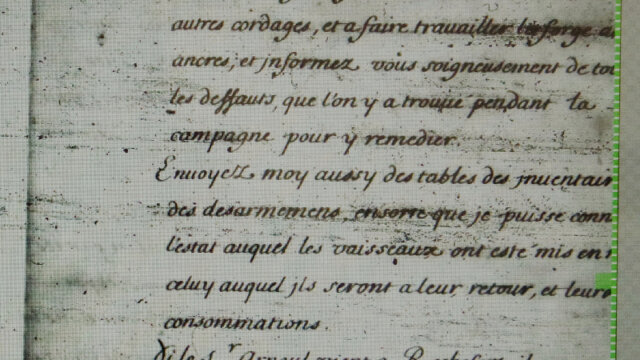 autres cordages, et a faire travailler les forge
ancres, et jnformez vous soigneusement de tou
les deffauts, que l'on y a trouué pendant la
campagne pour y remedier.
Enuoyez moy aussy des tables des jnuentair
des desarmemens, ensorte que je puisse conn
l'estat auquel les vaisseaux ont esté mis en
celuy auquel jls seront a leur retour, et leurs
consommations.